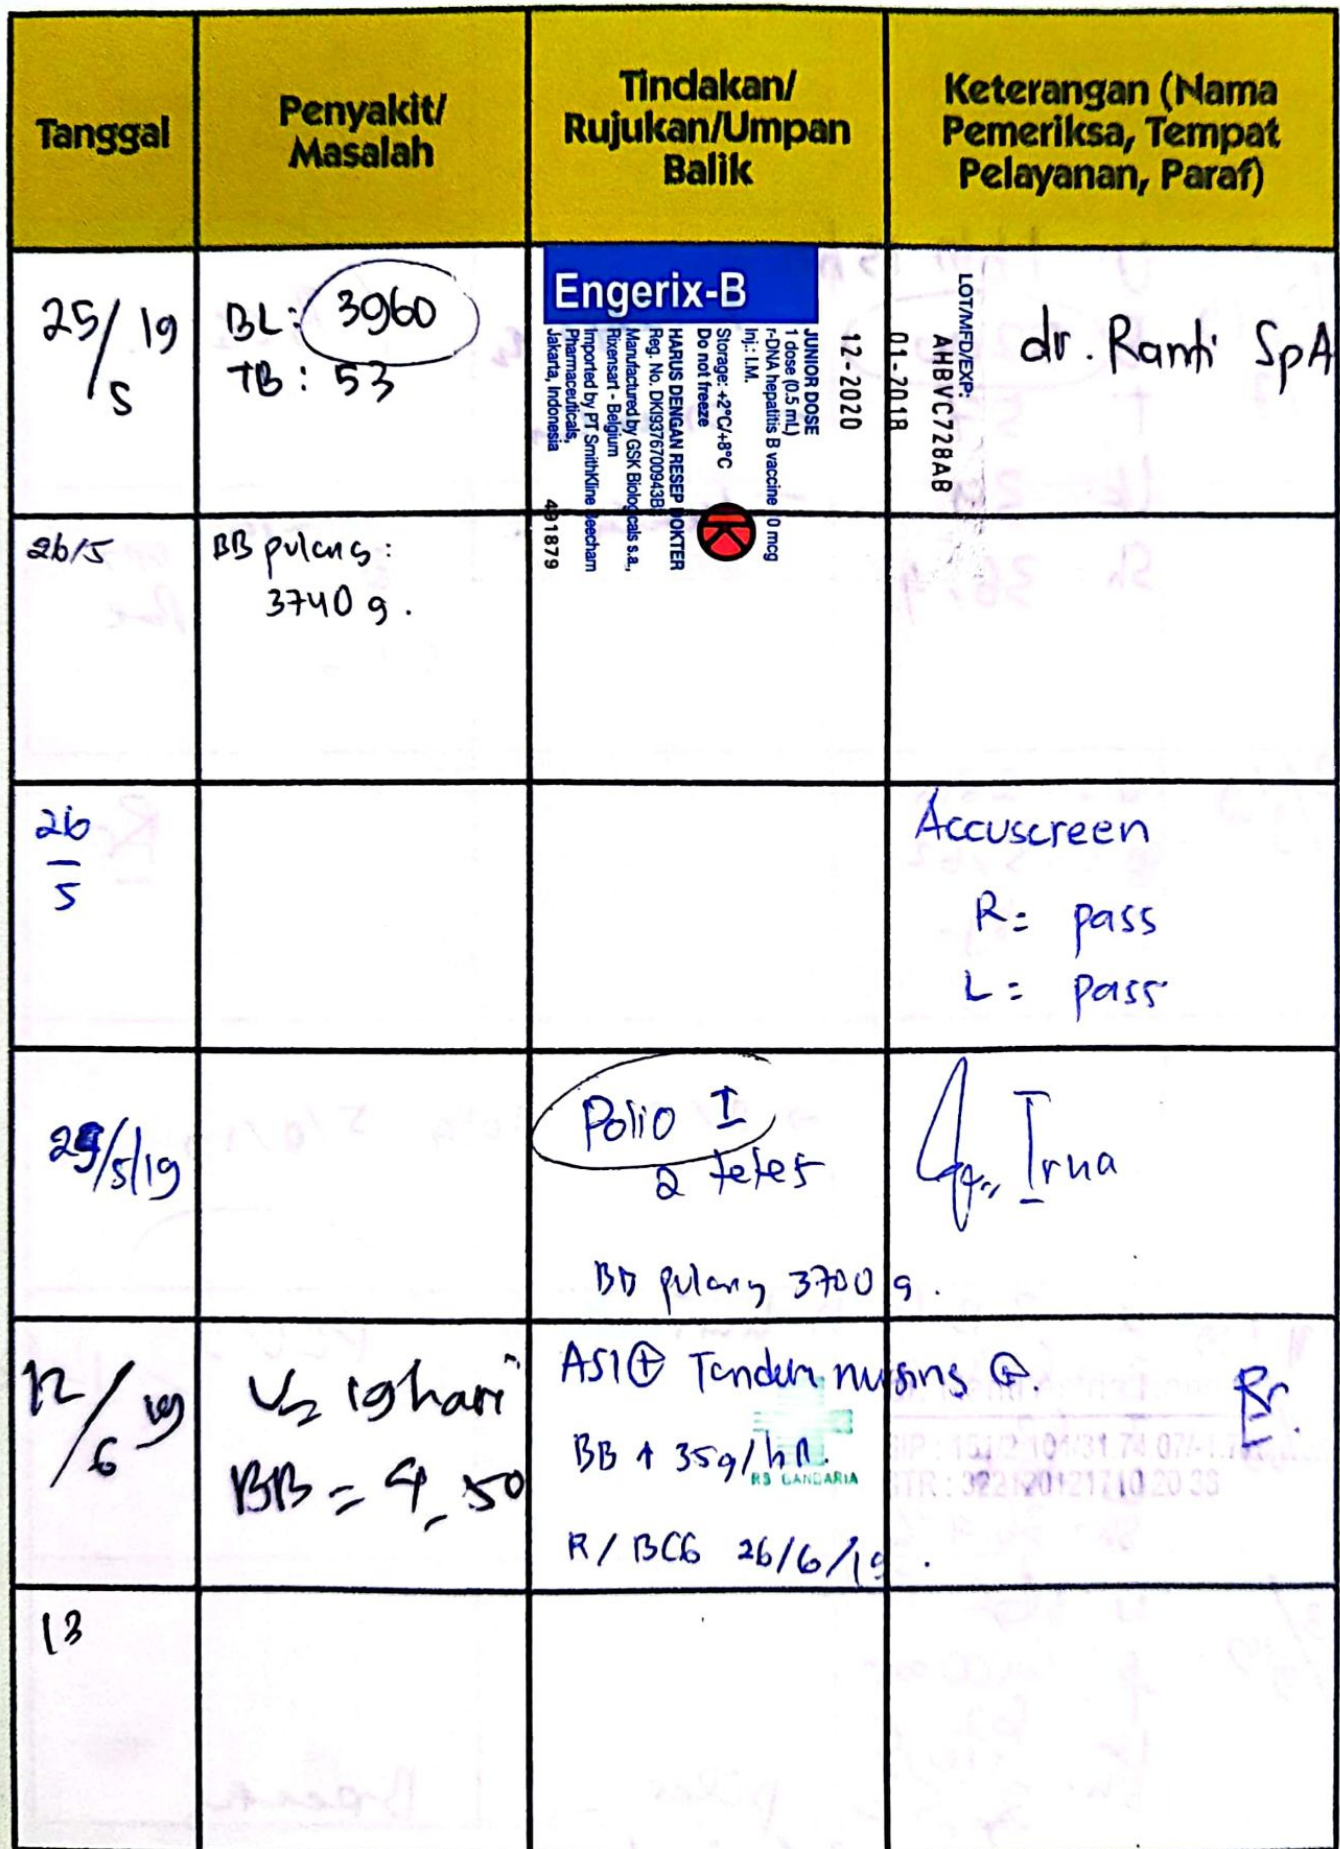 Tanggal
Penyakit/
Masalah
Tindakan/
Rujukan/Umpan
Balik
Keterangan (Nama
Pemeriksa, Tempat
Pelayanan, Paraf)
25/5 19
BL: 3960
TB: 53
Engerix-B
JUNIOR DOSE
1 dose (0.5 mL)
r-DNA hepatitis B vaccine 10 mcg
Inj.: I.M.
Storage: +2°C/+8°C
Do not freeze
HARUS DENGAN RESEP DOKTER
Reg. No. DKI9376700943B
Manufactured by GSK Biologicals s.a.,
Rixensart - Belgium
Imported by PT SmithKline Beecham
Pharmaceuticals,
Jakarta, Indonesia
491879
LOT/MFD/EXP:
AHBVC728AB
01-2018
12-2020
dr. Ranti SpA
26/5
BB pulang:
3740 g.
26
5
Accuscreen
R= pass
L= pass
29/5/19
Polio I
2 tetes
BB pulang 3700 g.
Irna
12/6 19
U= 19 hari
BB = 4,50
ASI ⊕ Tandem nursing ⊕.
BB ↑ 35g/hr.
R/ BCG 26/6/19.
RS GANDARIA
13